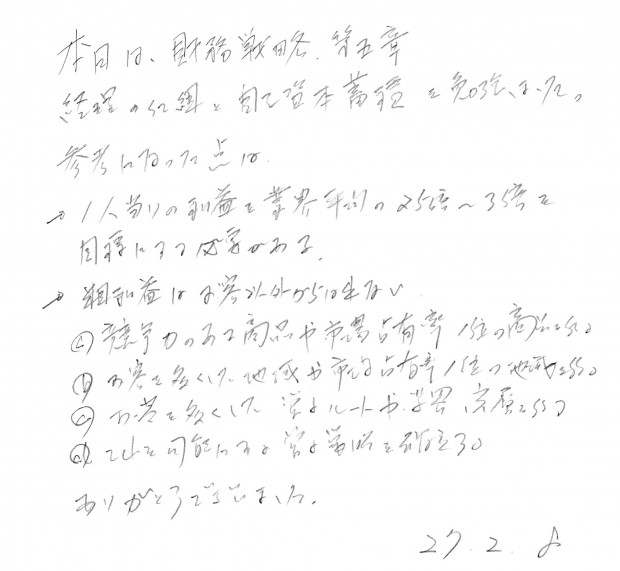 本日は、財務戦略、第五章
経理の仕組と自己資本蓄積を勉強しました。
参考になった点は
→ 1人当りの利益を業界平均の2.5倍〜3.5倍を
目標にする必要がある。
→ 粗利益はお客以外からは生れない
ⓐ 競争力のある商品や市場占有率1位の商品を
ⓑ お客を多くした地域や市場占有率1位の地域を
ⓒ お客を多くした営業ルートや業界、客層を
ⓓ これを可能にする営業戦略を確立する
ありがとうございました。
27. 2. 8